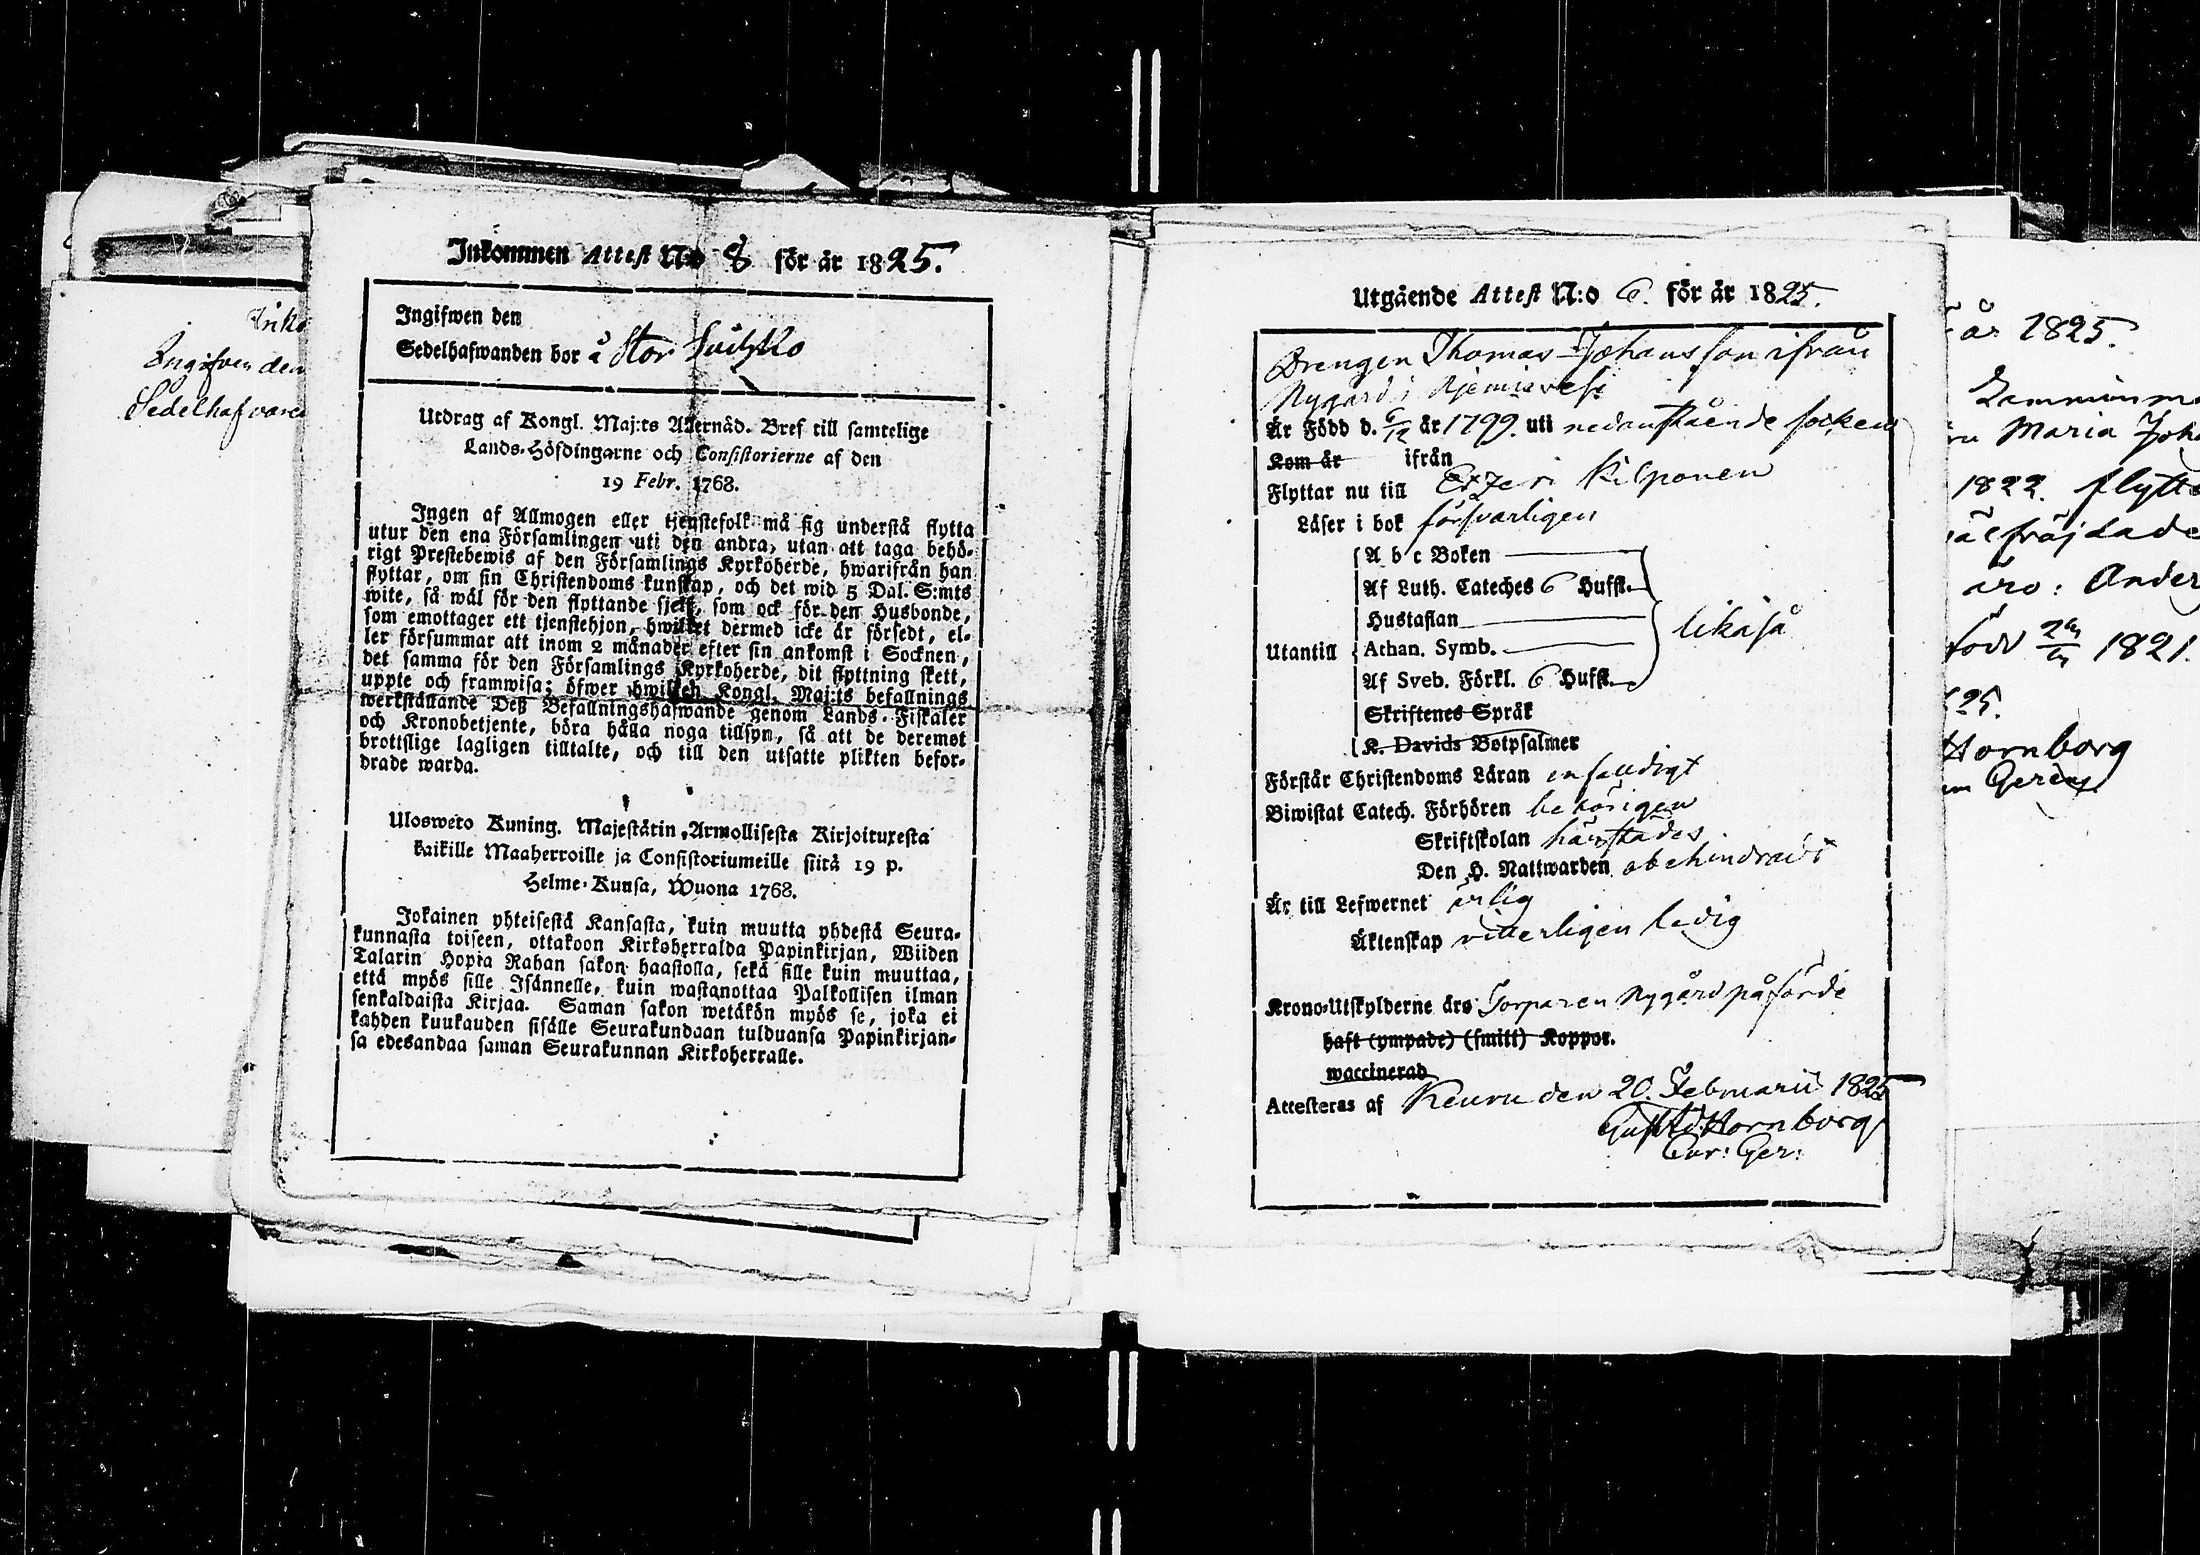 Inko
Ingifven den
Sedelhafvare
Inkommen Attest N:o 8 för år 1825.
Ingifwen den
Sedelhafwanden bor å Stor
Utdrag af Kongl. Maj:ts Allernåd. Bref till samtelige
Lands-Höfdingarne och Consistorierne af den
19 Febr. 1768.
Ingen af Allmogen eller tjenstefolk må sig understå flytta
utur den ena Församlingen uti den andra, utan att taga behö-
rigt Prestebewis af den Församlings Kyrkoherde, hwarifrån han
flyttar, om sin Christendoms kunskap, och det wid 5 Dal. S:mts
wite, så wäl för den flyttande sjelf, som ock för den Husbonde,
som emottager ett tjenstehjon, hwilket dermed icke är försedt, el-
ler försummar att inom 2 månader efter sin ankomst i Socknen,
det samma för den Församlings Kyrkoherde, dit flyttning skett,
uppte och framwisa; öfwer hwilken Kongl. Maj:ts befallnings
werkställande Deß Befallningshafwande genom Lands-Fiskaler
och Kronobetjente, böra hålla noga tillsyn, så att de deremot
brottslige lagligen tilltalte, och till den utsatte plikten befor-
drade warda.
Ulosweto Kuning. Majestätin Armollisesta Kirjoituxesta
kaikille Maaherroille ja Consistoriumeille siitä 19 p.
Helme-Kuusa, Wuona 1768.
Jokainen yhteisestä Kansasta, kuin muutta yhdestä Seura-
kunnasta toiseen, ottakoon Kirkoherralda Papinkirjan, Wiiden
Talarin Hopia Rahan sakon haastolla, sekä sille kuin muuttaa,
että myös sille Isännelle, kuin wastanottaa Palkollisen ilman
senkaldaista Kirjaa. Saman sakon wetäkön myös se, joka ei
kahden kuukauden sisälle Seurakundaan tulduansa Papinkirjan-
sa edesandaa saman Seurakunnan Kirkoherralle.
Utgående Attest N:o 6. för år 1825.
Drengen Thomas Johansson ifrån
Nygård i
Är Född d. 6/12 år 1799. uti nedanstående socken
Kom år ifrån
Flyttar nu till Etzeri Kilponen
Läser i bok försvarligen
A b c Boken
Af Luth. Cateches 6 Hufst.
Hustaflan
Utantill Athan. Symb. likaså
Af Sveb. Förkl. 6 Hufst.
Skriftenes Språk
K. Davids Botpsalmer
Förstår Christendoms Läran enfalldigt
Biwistat Catech. Förhören behörigen
Skriftskolan härstädes
Den H. Nattwarden obehindradt
Är till Lefwernet ärlig
Äktenskap vitterligen ledig
Krono-Utskylderne äro Torparen Nygård påförde
haft (ympade) (smitt) Koppor.
waccinerad
Attesteras af Keuru den 20. Februarii 1825
Gust. Ad. Hornborg
Cur: Ger:
år 1825.
Maria Joh
1822. flytt
fräjdade
äro: Ander
född 1821.
25.
Hornborg
Gerens